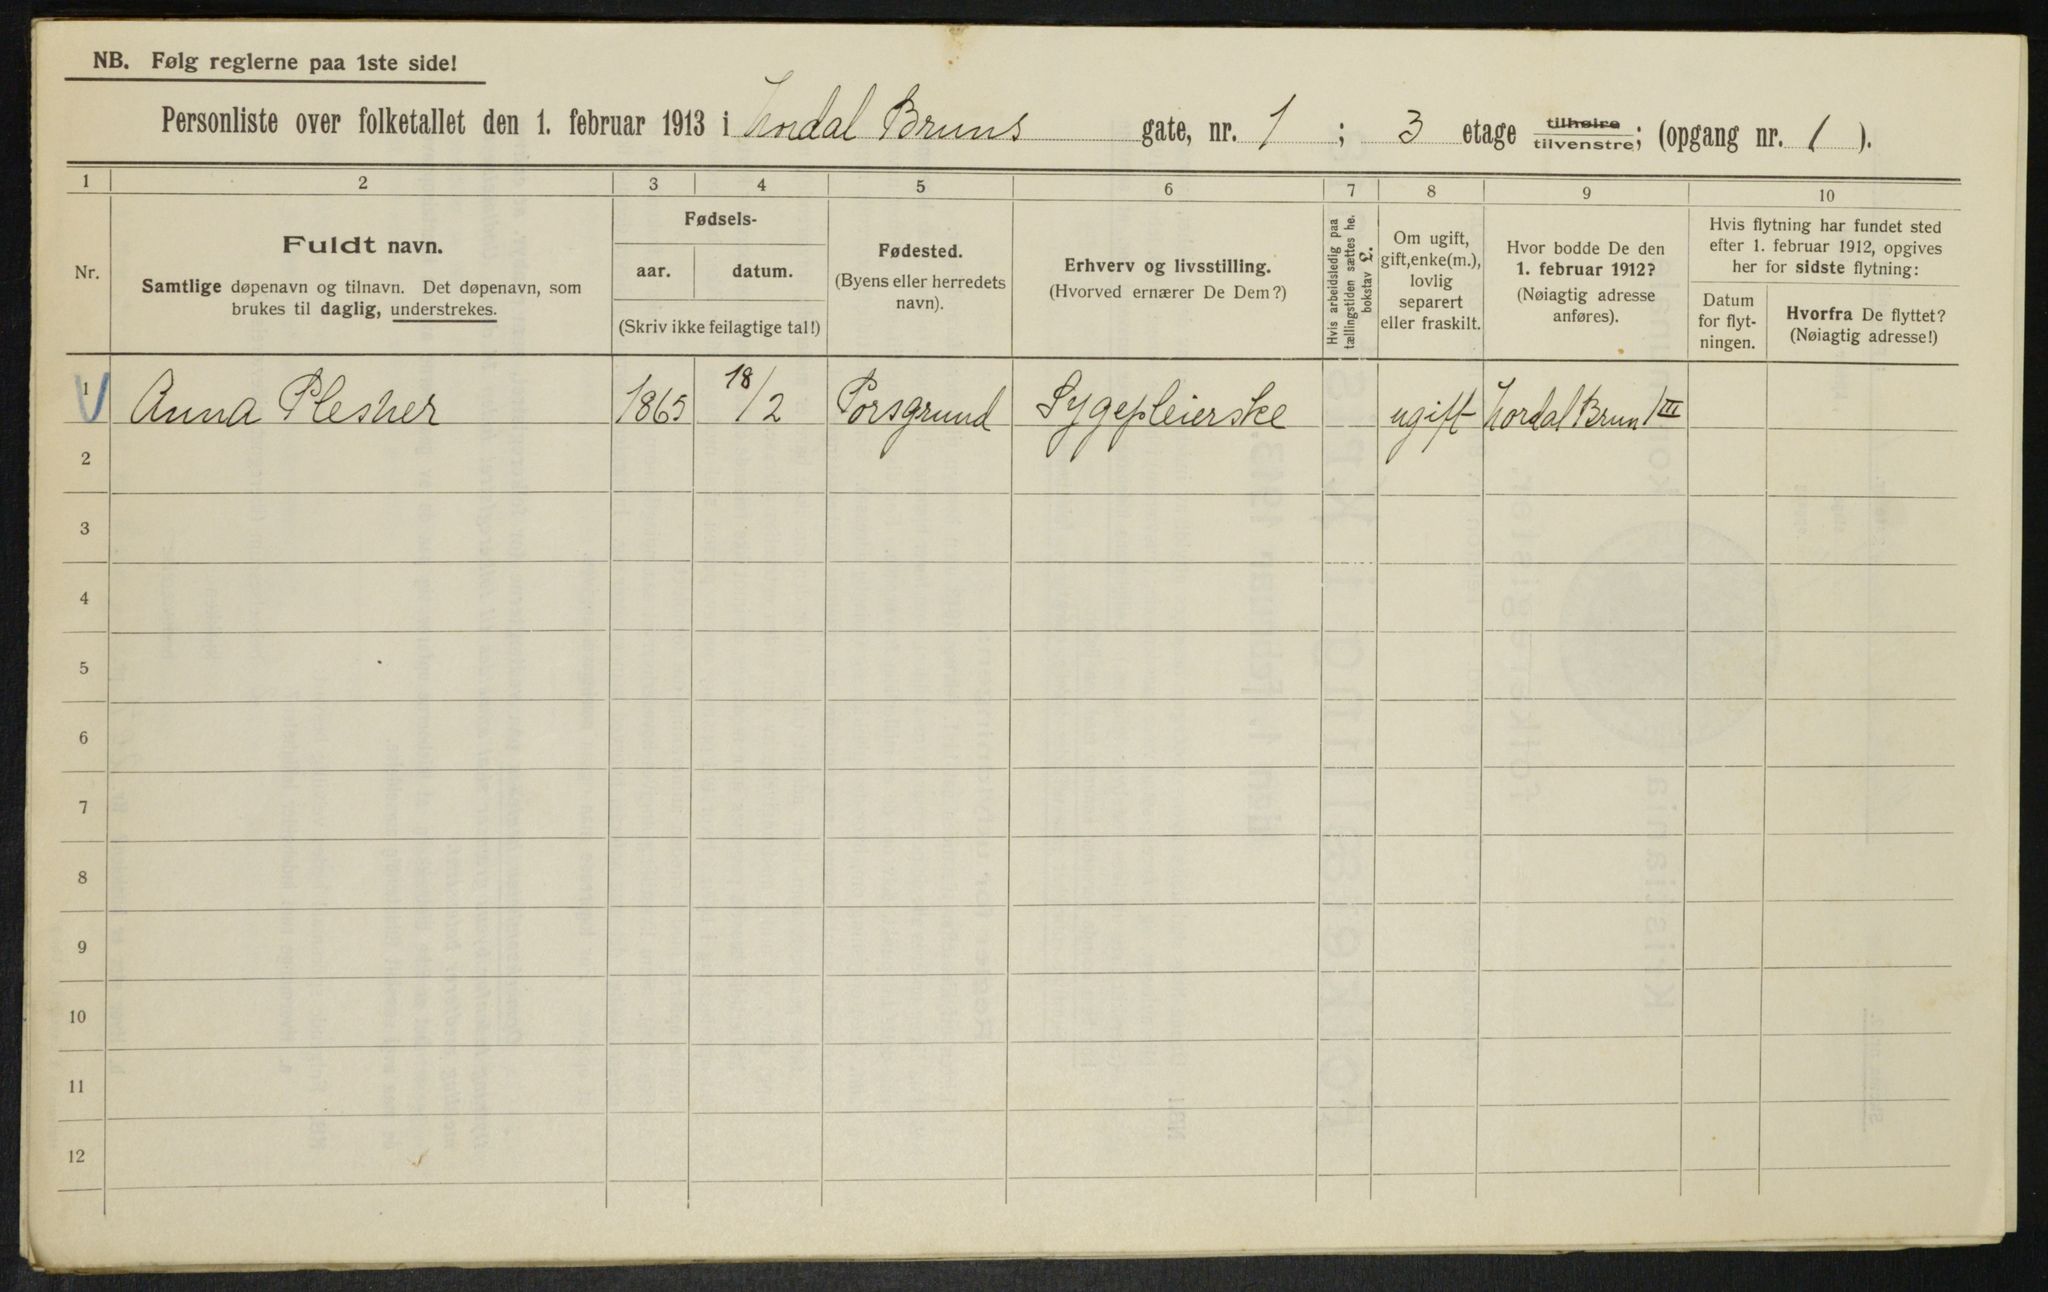 NB. Følg reglerne paa 1ste side!
Personliste over folketallet den 1. februar 1913 i Nordal Bruns gate, nr. 1 ; 3 etage tilhøire tilvenstre; (opgang nr. 1 ).
1 2 3 4 5 6 7 8 9 10
Nr.
Fuldt navn.
Samtlige døpenavn og tilnavn. Det døpenavn, som
brukes til daglig, understrekes.
Fødsels-
aar. datum.
(Skriv ikke feilagtige tal!)
Fødested.
(Byens eller herredets
navn).
Erhverv og livsstilling.
(Hvorved ernærer De Dem?)
Hvis arbeidsledig paa
tællingstiden sættes he.
bokstav £.
Om ugift,
gift,enke(m.),
lovlig
separert
eller fraskilt.
Hvor bodde De den
1. februar 1912?
(Nøiagtig adresse
anføres).
Hvis flytning har fundet sted
efter 1. februar 1912, opgives
her for sidste flytning:
Datum
for flyt-
ningen.
Hvorfra De flyttet?
(Nøiagtig adresse!)
1 Anna Plesner 1865 18/2 Porsgrund Sygepleierske ugift Nordal Brun 1 III
2
3
4
5
6
7
8
9
10
11
12